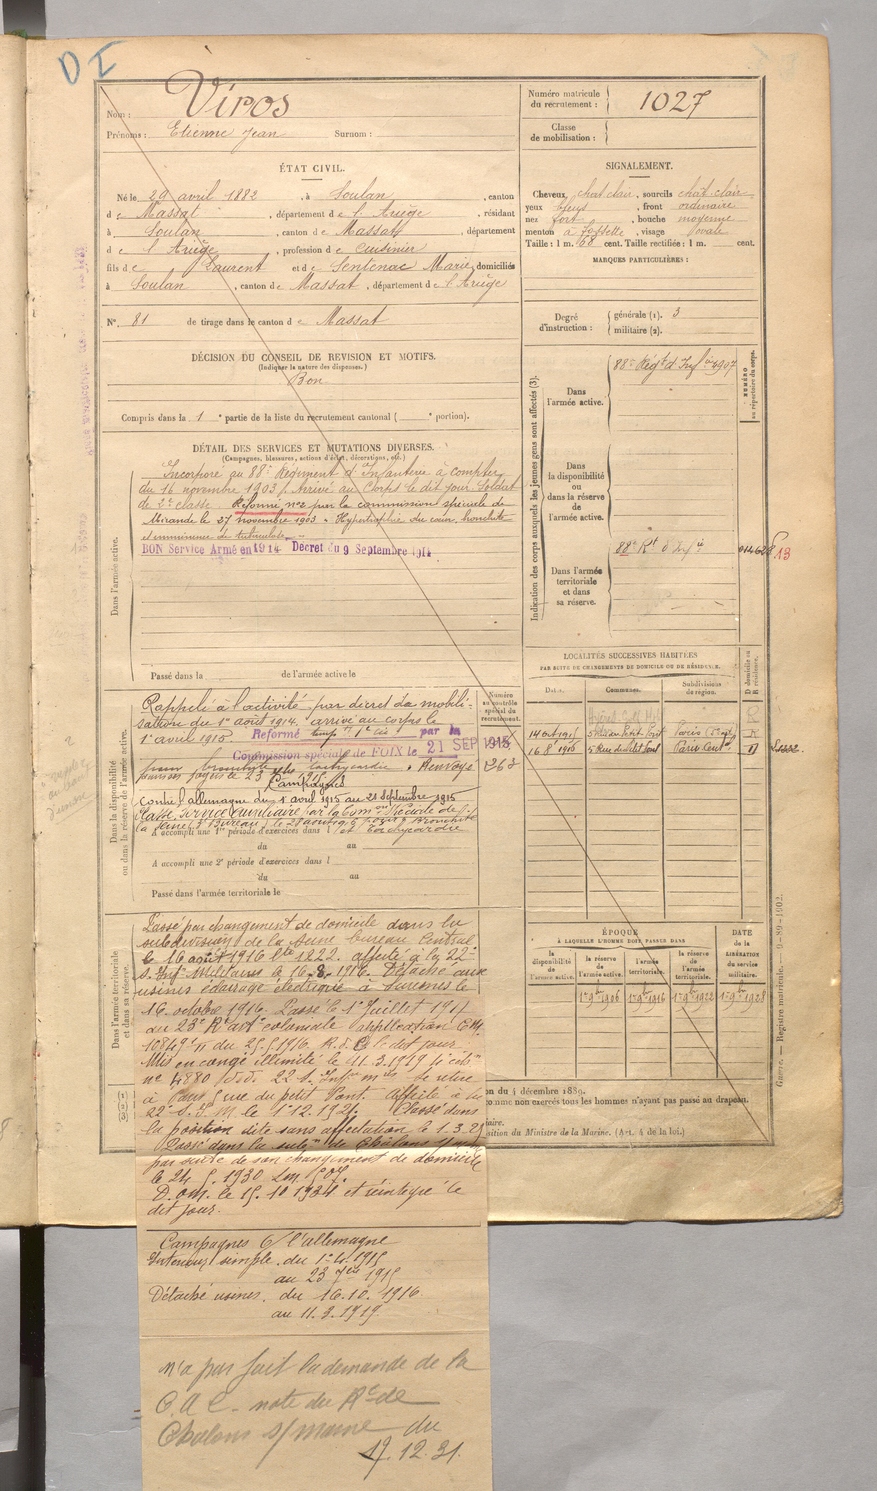 D I
Nom : Viros
Prénoms : Etienne Jean Surnom :
Numéro matricule du recrutement : 1027
Classe de mobilisation :
ÉTAT CIVIL.
Né le 29 avril 1882, à Soulan, canton
de Massat, département de l'Ariège, résidant
à Soulan, canton de Massat, département
de l'Ariège, profession de Cuisinier
fils de Laurent et de Sentenac Marie, domiciliés
à Soulan, canton de Massat, département de l'Ariège
N° 81 de tirage dans le canton de Massat
SIGNALEMENT.
Cheveux chat clair, sourcils chat-clair
yeux bleus, front ordinaire
nez fort, bouche moyenne
menton à fossette, visage ovale
Taille : 1 m. 68 cent. Taille rectifiée : 1 m. cent.
MARQUES PARTICULIÈRES :
Degré d'instruction : générale (1). 3
militaire (2).
DÉCISION DU CONSEIL DE REVISION ET MOTIFS.
(Indiquer la nature des dispenses.)
Bon
Compris dans la 1e partie de la liste du recrutement cantonal ( e portion).
DÉTAIL DES SERVICES ET MUTATIONS DIVERSES.
(Campagnes, blessures, actions d'éclat, décorations, etc.)
Dans l'armée active.
Incorporé au 88e Régiment d'Infanterie à compter
du 16 novembre 1903. Arrivé au Corps le dit jour. Soldat
de 2e classe. Réformé n°2 par la commission spéciale de
Mirande le 27 novembre 1903 « Hypertrophie du cœur, bronchite
et imminence de tuberculose »
BON Service Armé en 1914 Décret du 9 Septembre 1914
Passé dans la de l'armée active le
Indication des corps auxquels les jeunes gens sont affectés (3).
NUMÉRO au répertoire du corps.
Dans l'armée active.
88e Régt d'Infie
Dans la disponibilité ou dans la réserve de l'armée active.
88e Rt d'Infie
13
Dans l'armée territoriale et dans sa réserve.
LOCALITÉS SUCCESSIVES HABITÉES
PAR SUITE DE CHANGEMENTS DE DOMICILE OU DE RÉSIDENCE.
Dates. Communes. Subdivisions de région. D domicile ou R résidence.
R
5 Rue du Petit Pont Paris R
16 8 1916 5 Rue du Petit Pont Paris Centl D
Dans la disponibilité ou dans la réserve de l'armée active.
Numéro au contrôle spécial du recrutement.
Rappelé à l'activité par décret de mobili-
sation du 1er août 1914. arrivé au corps le
1er avril 1915. Réformé par la
Commission spéciale de FOIX le 21 SEP 1915
pour bronchite tachycardie. Renvoyé
263
Campagnes
Contre l'allemagne du 1 avril 1915 au 21 septembre 1915
Classé Service Auxiliaire par la
et tachycardie
A accompli une 1re période d'exercices dans l
du au
A accompli une 2e période d'exercices dans l
du au
Passé dans l'armée territoriale le
Dans l'armée territoriale et dans sa réserve.
Passé par changement de domicile dans la
subdivision de la Seine bureau Central
le 16 août 1916 Lte 1222. affecté à la 22e
S. Infi Militaires le 16.8.1916. Détaché aux
usines éclairage électrique à Suresnes le
16 octobre 1916. Passé le 1er Juillet 1917
au 23e Rt artie coloniale (application C.M.
R.d.C. le dit jour.
Mis en congé illimité le 11.3.1919
n° 4880 22 S. Infre mres Se retire
à Paris 5 rue du petit Pont. affecté à la
22e S.I.M le 1.12.1921. Classé dans
la position dite sans affectation le 1.3.2
Passé dans la subon de Châlons S/
par suite de son changement de domicile
le 24 5. 1930
D.O.M. le 15.10 1931. et réintégré le
dit jour.
Campagnes C/ l'allemagne
Intérieur simple. du 1er.4.1915
au 23 7bre 1915
Détaché usines. du 16.10.1916.
au 11.3.1919
n'a pas fait la demande de la
C.A.C. note du Rt de
Châlons s/marne du
17.12.31.
ÉPOQUE
À LAQUELLE L'HOMME DOIT PASSER DANS
la disponibilité de l'armée active. la réserve de l'armée active. l'armée territoriale. la réserve de l'armée territoriale.
DATE de la LIBÉRATION du service militaire.
1er 9bre 1906 1er 9bre 1916 1er 9bre 1922 1er 9bre 1928
(1)
(2)
(3)
on du 4 décembre 1889.
comme non exercés tous les hommes n'ayant pas passé au drapeau.
aire.
sition du Ministre de la Marine. (Art. 4 de la loi.)
Guerre. — Registre matricule. — 9-89-1902.